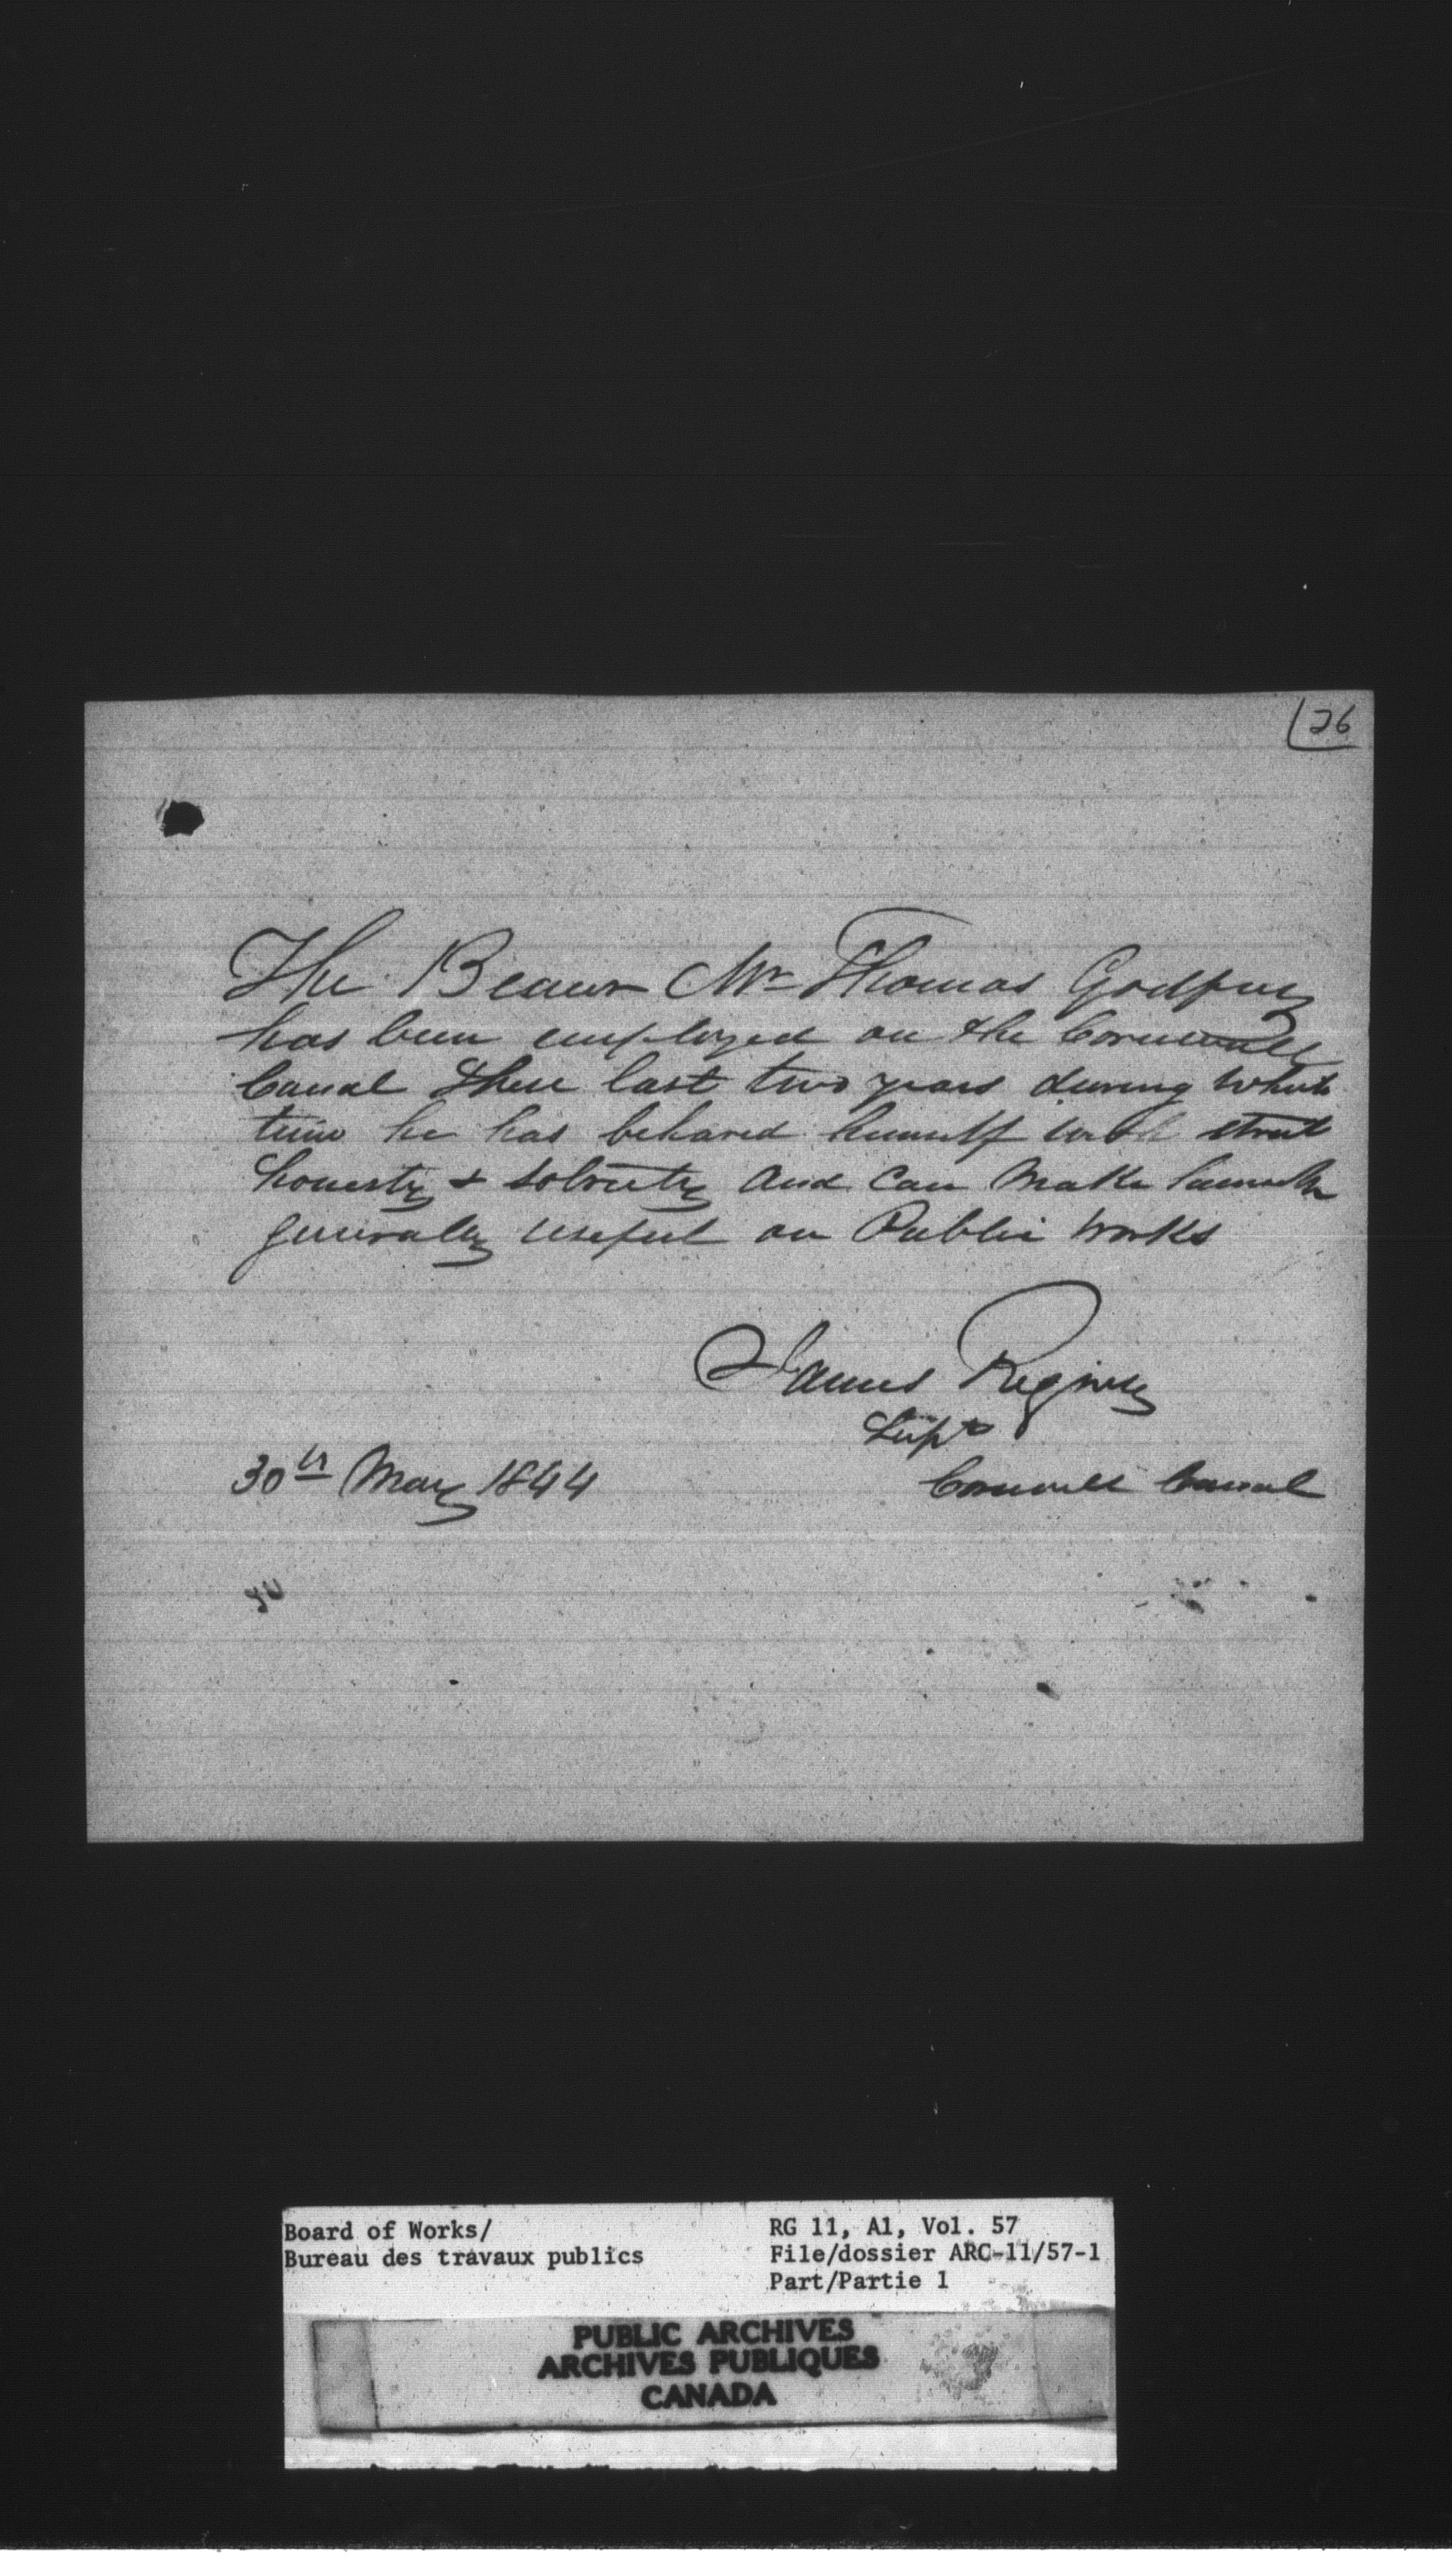 26
The Bearer Mr Thomas Godfrey
has been employed on the Cornwall
Canal these last two years during which
time he has behaved himself with strict
honesty & sobriety and can make himself
generally useful on Public Works
James
Supt
30th May 1844
Cornwall Canal
Board of Works/
Bureau des travaux publics
RG 11, A1, Vol. 57
File/dossier ARC-11/57-1
Part/Partie 1
PUBLIC ARCHIVES
ARCHIVES PUBLIQUES
CANADA